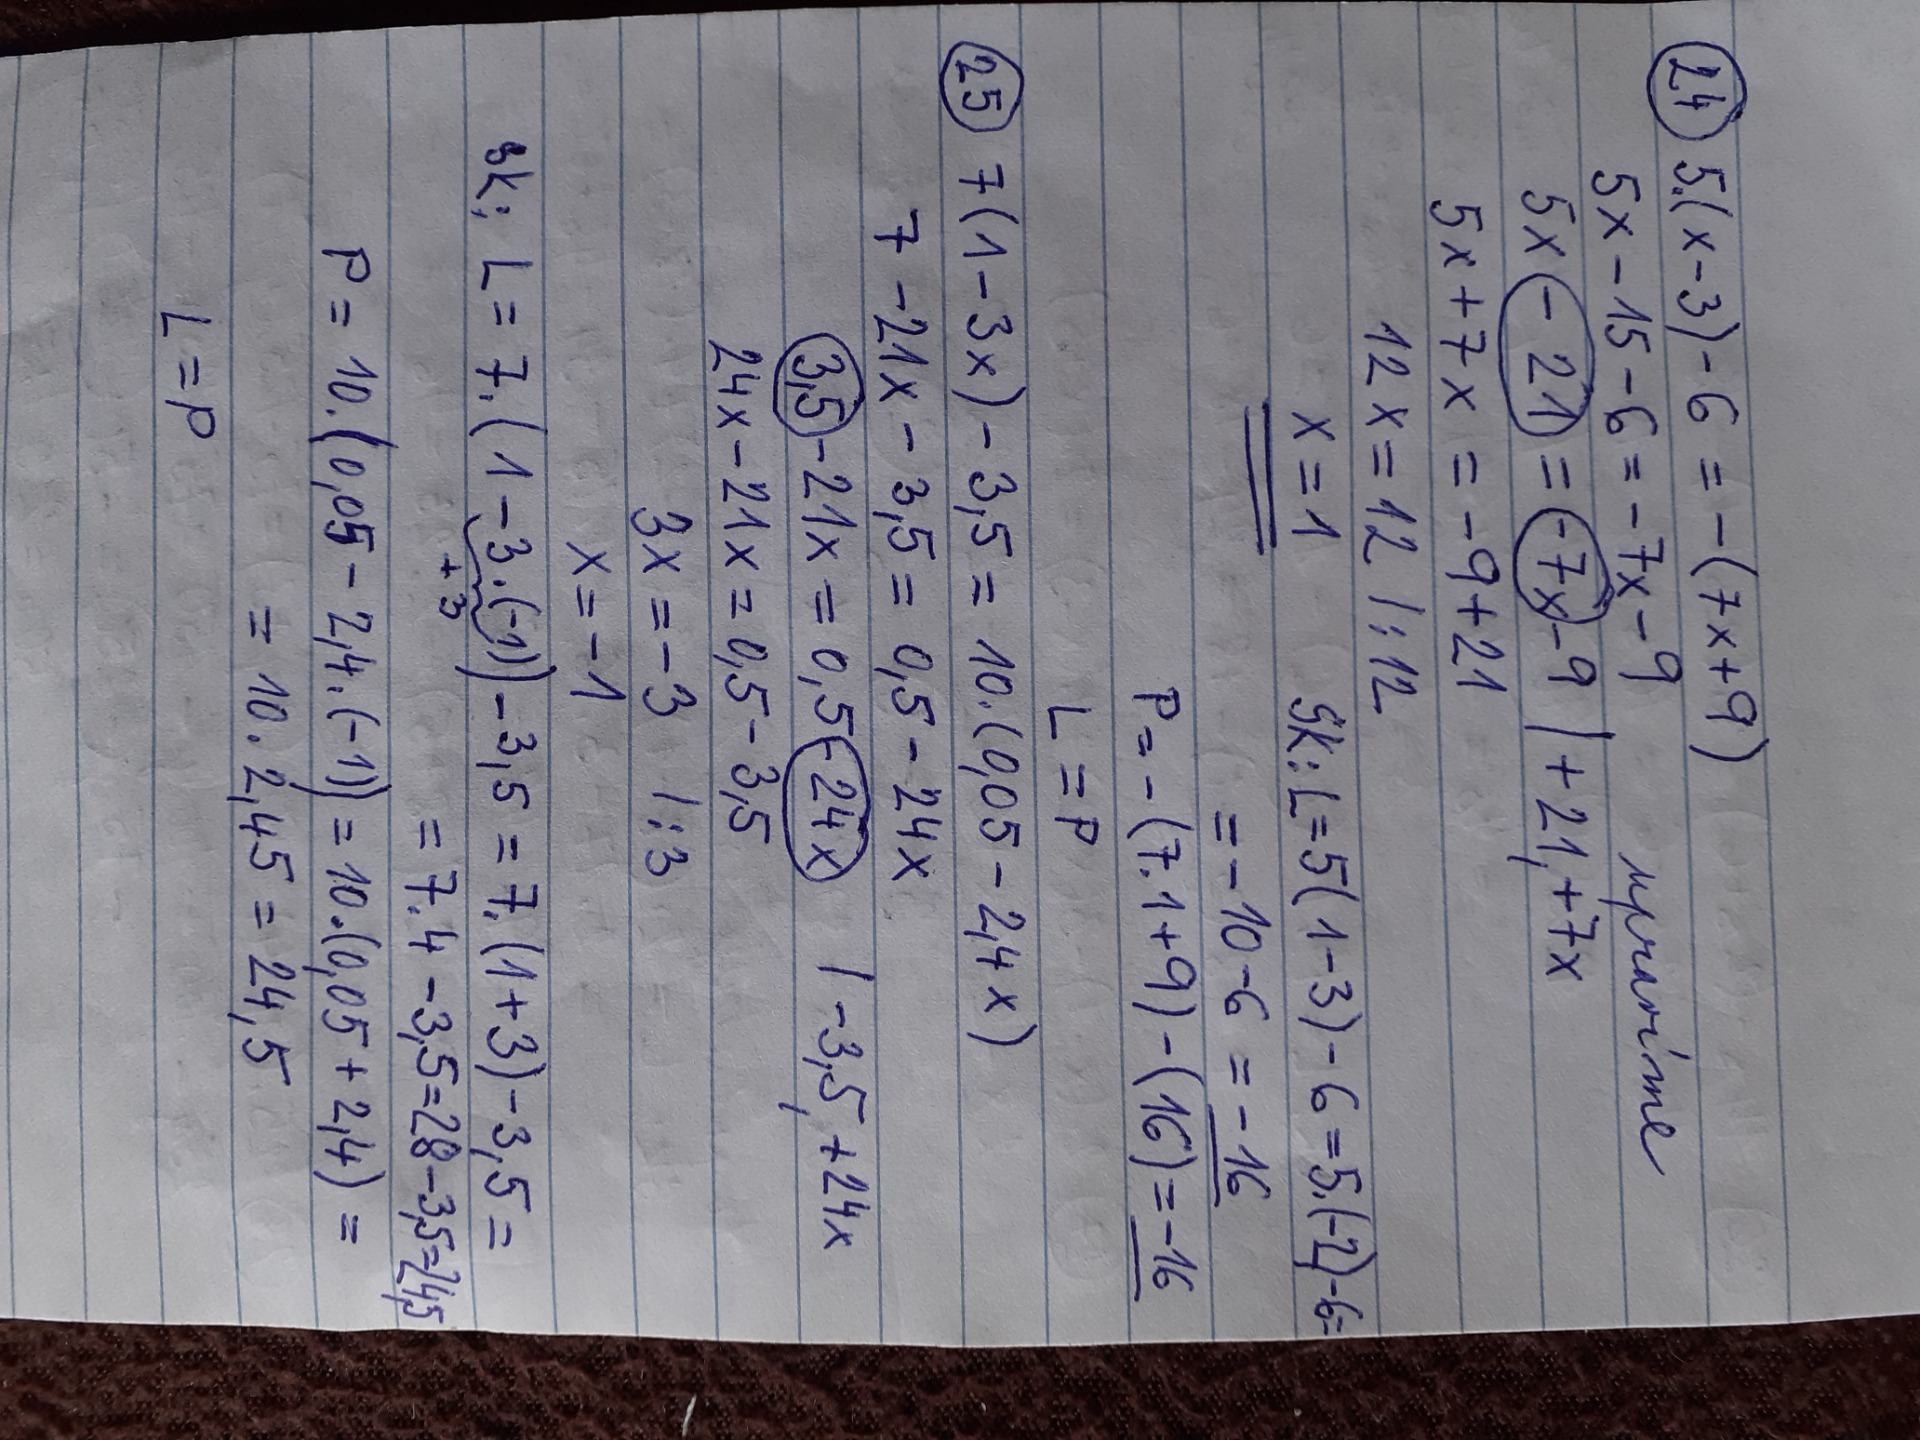 24 5.(x-3)-6 = -(7x+9)
5x-15-6 = -7x-9 upravíme
5x-21 = -7x-9 |+21,+7x
5x+7x = -9+21
12x = 12 /:12
x = 1 Sk: L=5(1-3)-6=5.(-2)-6=
= -10-6 = -16
P = -(7.1+9) - (16) = -16
L = P
25 7(1-3x)-3,5 = 10.(0,05-2,4x)
7-21x-3,5 = 0,5-24x
3,5-21x = 0,5-24x /-3,5,+24x
24x-21x = 0,5-3,5
3x = -3 /:3
x = -1
sk: L = 7.(1-3.(-1))-3,5 = 7.(1+3)-3,5 =
+3
= 7.4-3,5=28-3,5=24,5
P = 10.(0,05-2,4.(-1)) = 10.(0,05+2,4) =
= 10.2,45 = 24,5
L = P